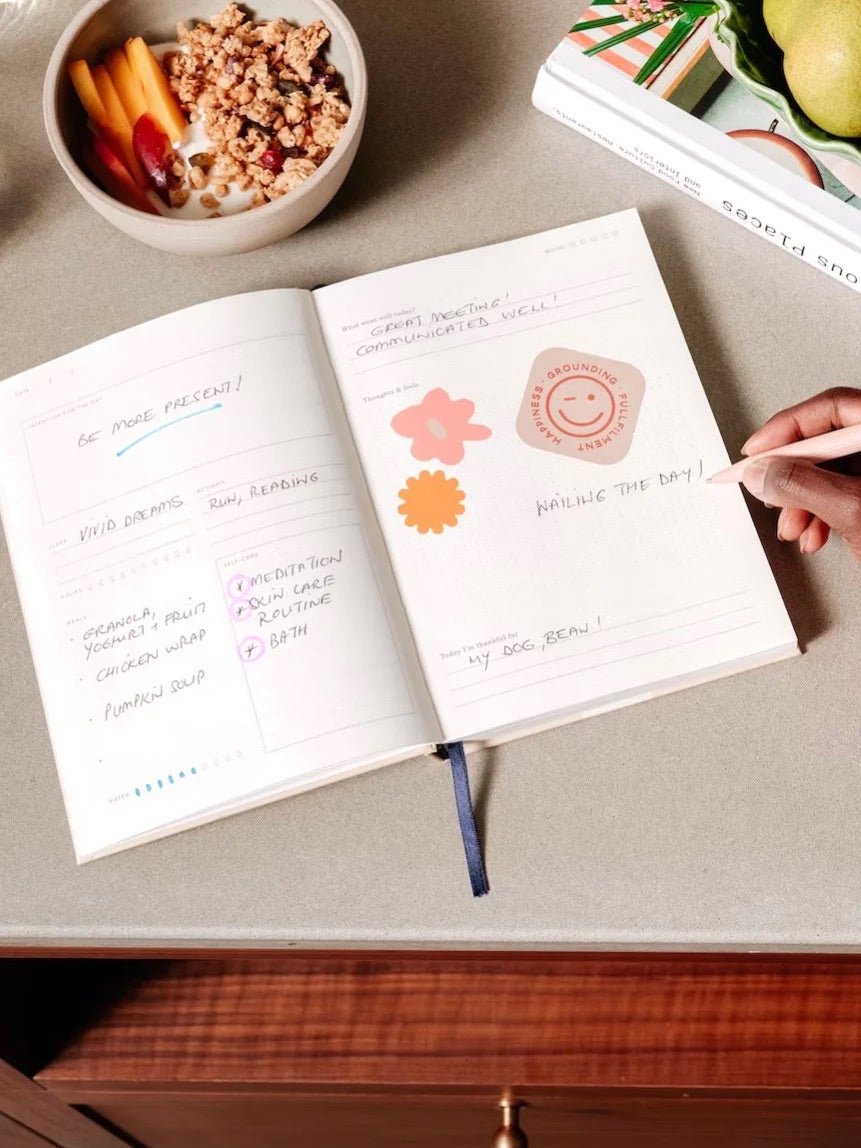 New Food Culture, Restaurants
and Interiors
ous Places
DATE / /
INTENTION FOR THE DAY
BE MORE PRESENT!
SLEEP
VIVID DREAMS
ACTIVITY
RUN, READING
HOURS
MEALS
· GRANOLA,
YOGHURT + FRUIT
· CHICKEN WRAP
· PUMPKIN SOUP
·
WATER
SELF-CARE
* MEDITATION
* SKIN CARE
ROUTINE
* BATH
MOOD
What went well today?
GREAT MEETING!
COMMUNICATED WELL!
Thoughts & feels
HAPPINESS · GROUNDING · FULFILMENT
NAILING THE DAY!
Today I'm thankful for
MY DOG, BEAN!